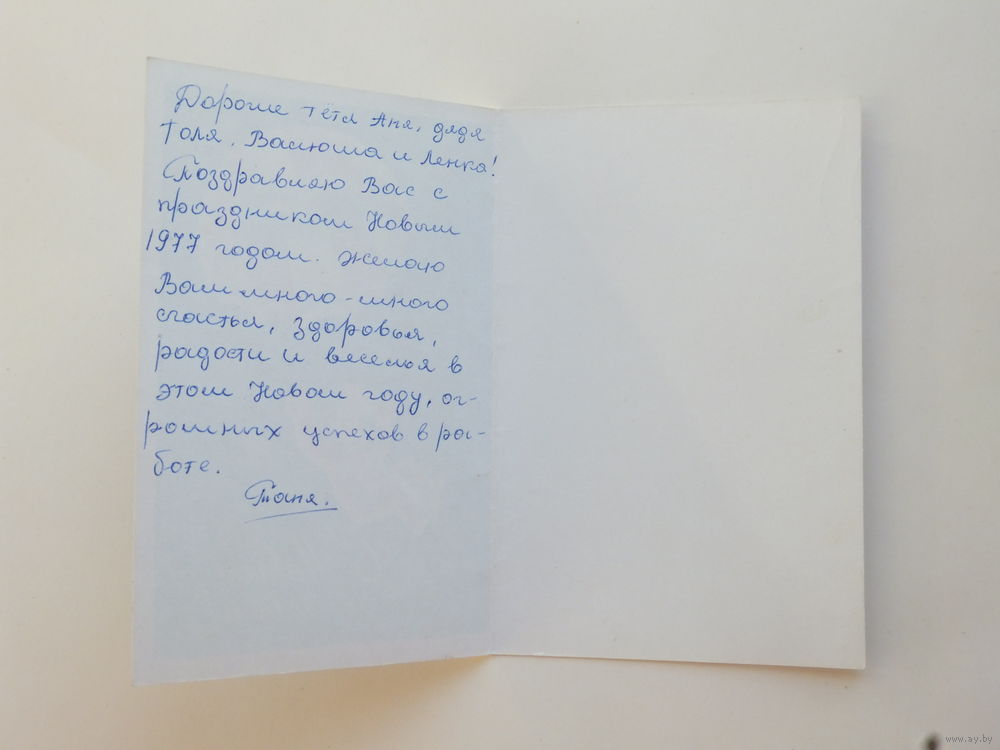 Дорогие тётя Аня, дядя
Толя, Валюша и Ленка!
Поздравляю Вас с
праздником Новым
1977 годом. Желаю
Вам много-много
счастья, здоровья,
радости и веселья в
этом Новом году, ог-
ромных успехов в ра-
боте.
Таня.
www.ay.by